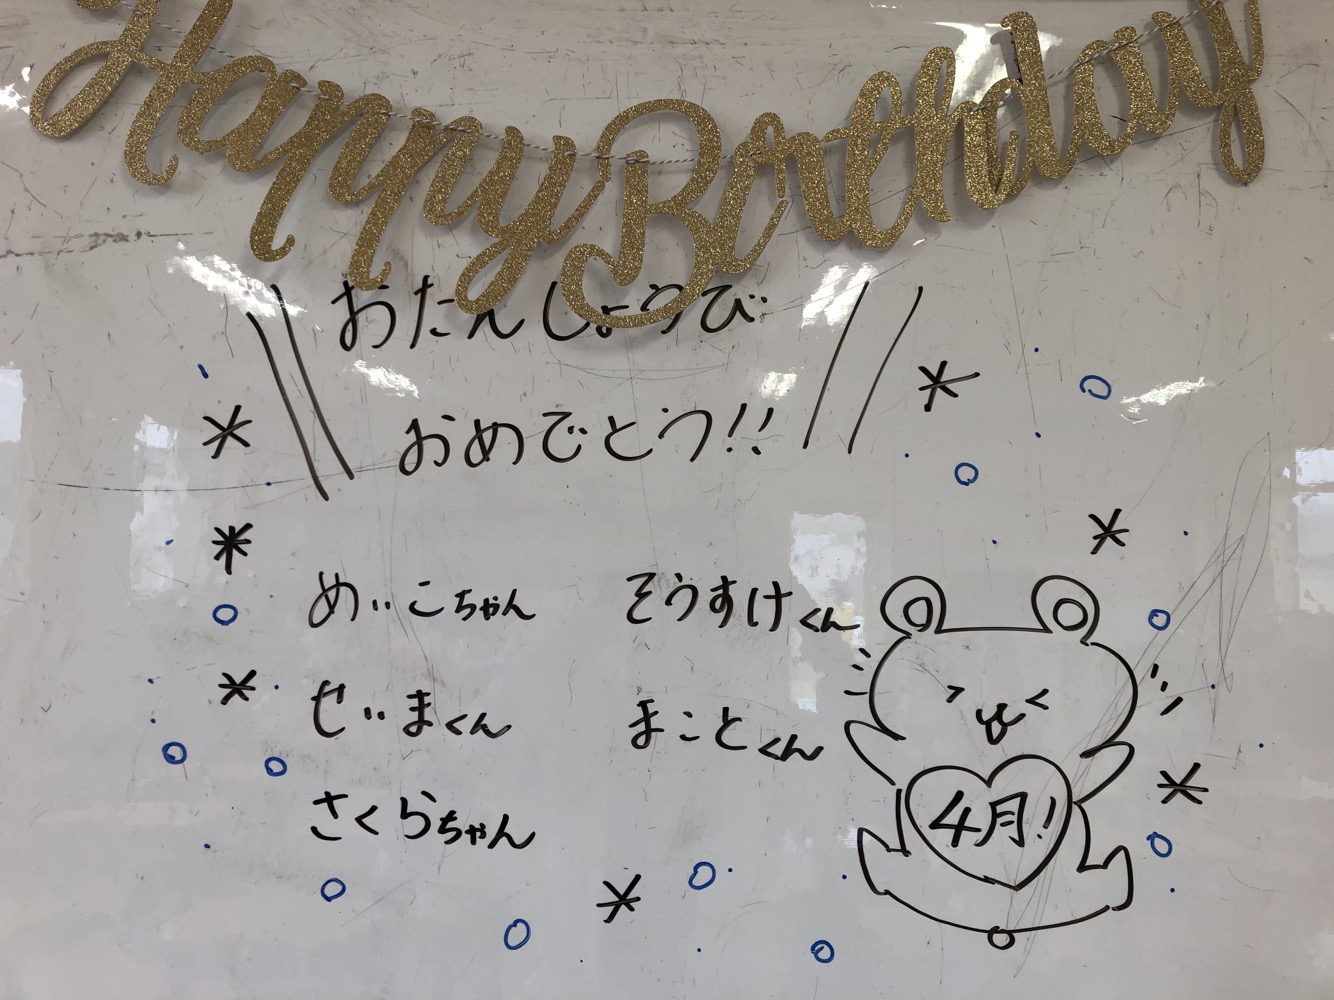 Happy Birthday
おたんじょうび
おめでとう!!
めいこちゃん
せいまくん
さくらちゃん
そうすけくん
まことくん
4月!